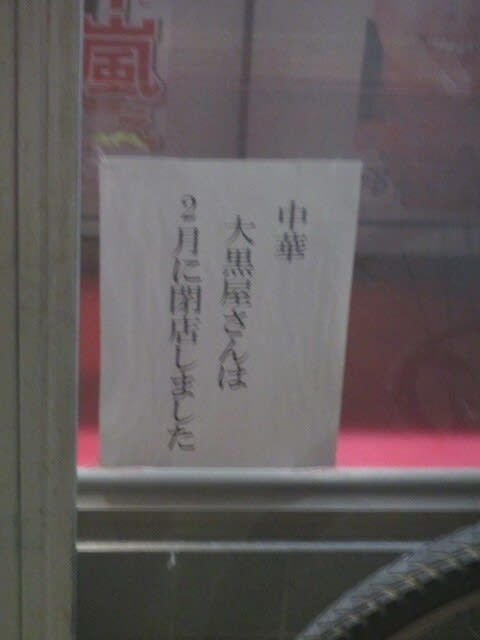 中華
大黒屋さんは
2月に閉店しました
嵐